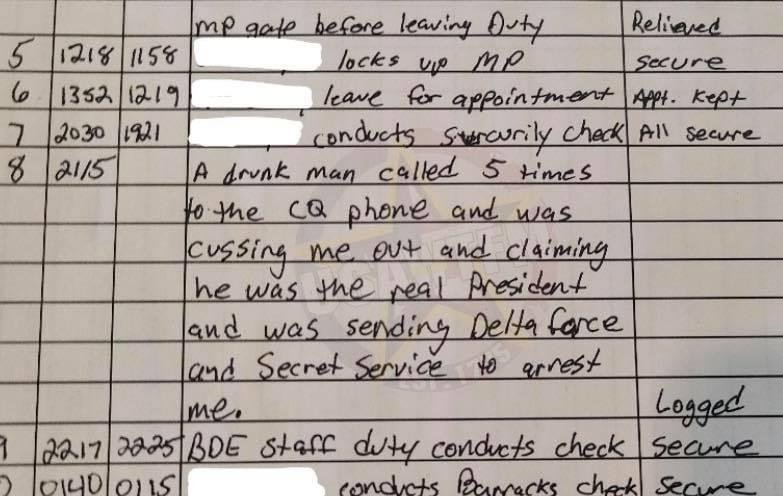 MP gate before leaving Duty Relieved
5 1218 1158 locks up MP secure
6 1352 1219 leave for appointment Appt. Kept
7 2030 1921 conducts surcurily check All secure
8 2115 A drunk man called 5 times
to the CQ phone and was
cussing me out and claiming
he was the real President
and was sending Delta force
and Secret Service to arrest
me. Logged
9 2217 2225 BDE staff duty conducts check secure
0140 0115 conducts Barracks check secure
USAWTFM
EST. 1775